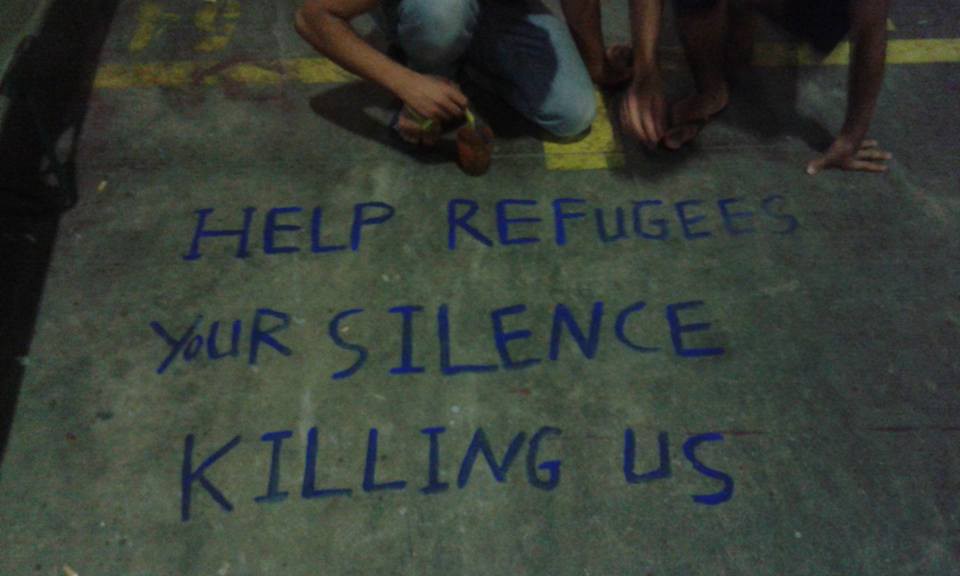 HELP REFUGEES
YOUR SILENCE
KILLING US